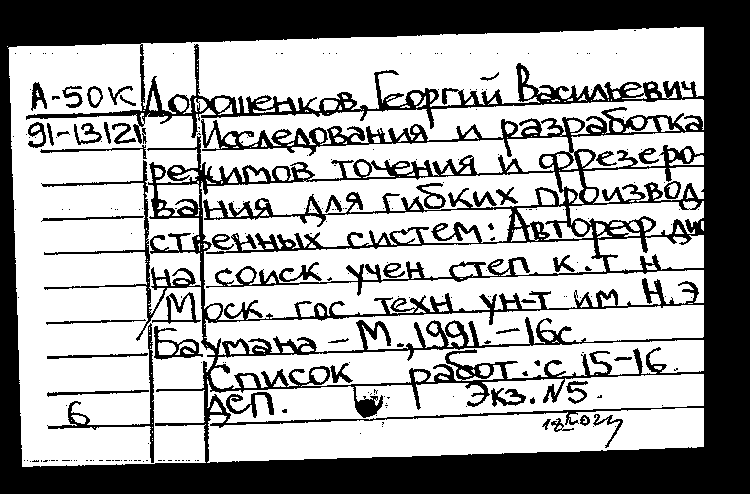 А-50К Дорошенков, Георгий Васильевич
91-13121 Исследования и разработка
режимов точения и фрезеро-
вания для гибких производ-
ственных систем: Автореф. дис
на соиск. учен. степ. к. т. н.
/Моск. гос. техн. ун-т им. Н.Э
Баумана – М., 1991. – 16с.
Список работ.: с. 15-16.
6 ДСП. Экз. №5.